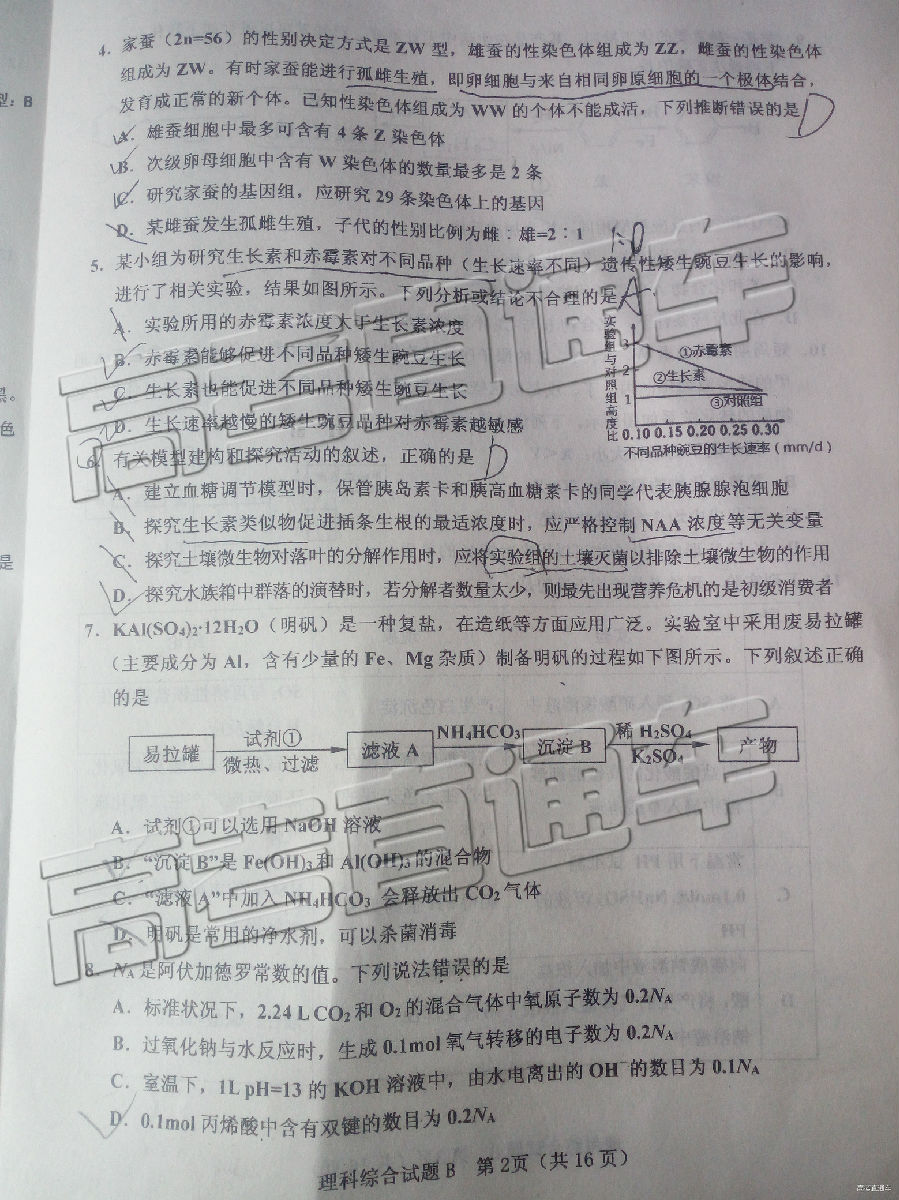 型：B
4. 家蚕（2n=56）的性别决定方式是 ZW 型，雄蚕的性染色体组成为 ZZ，雌蚕的性染色体
组成为 ZW。有时家蚕能进行孤雌生殖，即卵细胞与来自相同卵原细胞的一个极体结合，
发育成正常的新个体。已知性染色体组成为 WW 的个体不能成活，下列推断错误的是 D
A. 雄蚕细胞中最多可含有 4 条 Z 染色体
B. 次级卵母细胞中含有 W 染色体的数量最多是 2 条
C. 研究家蚕的基因组，应研究 29 条染色体上的基因
D. 某雌蚕发生孤雌生殖，子代的性别比例为雌：雄=2：1
5. 某小组为研究生长素和赤霉素对不同品种（生长速率不同）遗传性矮生豌豆生长的影响，
进行了相关实验，结果如图所示。下列分析或结论不合理的是 A
A. 实验所用的赤霉素浓度大于生长素浓度
B. 赤霉素能够促进不同品种矮生豌豆生长
C. 生长素也能促进不同品种矮生豌豆生长
D. 生长速率越慢的矮生豌豆品种对赤霉素越敏感
实验组与对照组高度比
3
2
1
①赤霉素
②生长素
③对照组
0.10 0.15 0.20 0.25 0.30
不同品种豌豆的生长速率（mm/d）
6. 有关模型建构和探究活动的叙述，正确的是 D
A. 建立血糖调节模型时，保管胰岛素卡和胰高血糖素卡的同学代表胰腺腺泡细胞
B. 探究生长素类似物促进插条生根的最适浓度时，应严格控制 NAA 浓度等无关变量
C. 探究土壤微生物对落叶的分解作用时，应将实验组的土壤灭菌以排除土壤微生物的作用
D. 探究水族箱中群落的演替时，若分解者数量太少，则最先出现营养危机的是初级消费者
7. KAl(SO₄)₂·12H₂O（明矾）是一种复盐，在造纸等方面应用广泛。实验室中采用废易拉罐
（主要成分为 Al，含有少量的 Fe、Mg 杂质）制备明矾的过程如下图所示。下列叙述正确
的是
易拉罐 试剂① 微热、过滤 滤液 A NH₄HCO₃ 沉淀 B 稀 H₂SO₄ K₂SO₄ 产物
A. 试剂①可以选用 NaOH 溶液
B. “沉淀 B”是 Fe(OH)₃和 Al(OH)₃的混合物
C. “滤液 A”中加入 NH₄HCO₃ 会释放出 CO₂ 气体
D. 明矾是常用的净水剂，可以杀菌消毒
8. Nᴀ 是阿伏加德罗常数的值。下列说法错误的是
A. 标准状况下，2.24 L CO₂ 和 O₂ 的混合气体中氧原子数为 0.2Nᴀ
B. 过氧化钠与水反应时，生成 0.1mol 氧气转移的电子数为 0.2Nᴀ
C. 室温下，1L pH=13 的 KOH 溶液中，由水电离出的 OH⁻的数目为 0.1Nᴀ
D. 0.1mol 丙烯酸中含有双键的数目为 0.2Nᴀ
理科综合试题 B 第 2页（共 16 页）
高考直通车
高考直通车
高考直通车